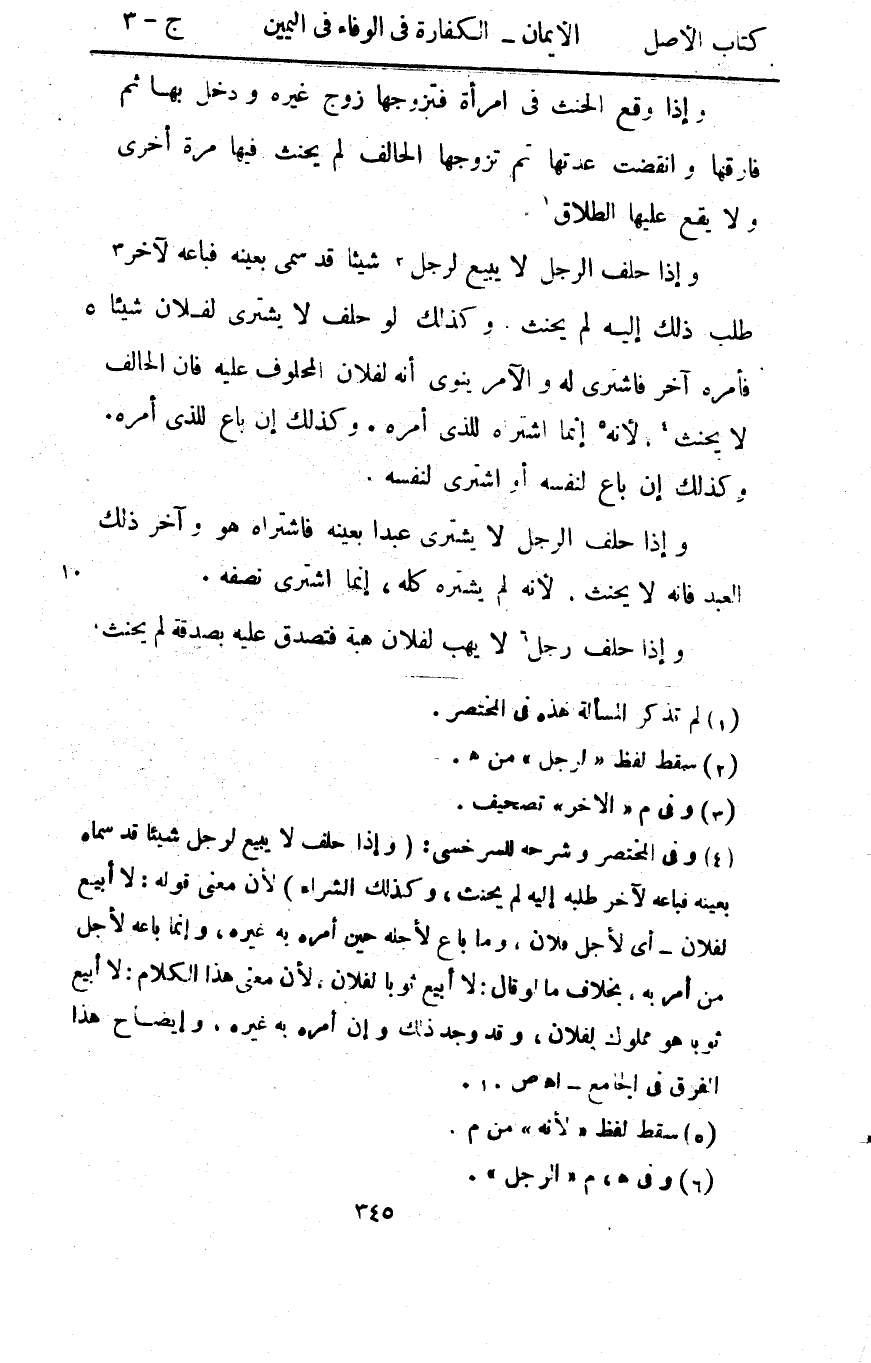 كتاب الأصل الأيمان ــ الكفارة فى الوفاء فى اليمين ج – ٣
و إذا وقع الحنث فى امرأة فتزوجها زوج غيره و دخل بهـا ثم
فارقها و انقضت عدتها ثم تزوجها الحالف لم يحنث فيها مرة أخرى
و لا يقع عليها الطلاق١ .
و إذا حلف الرجل لا يبيع لرجل٢ شيئا قد سمى بعينه فباعه لآخر٣
طلب ذلك إليـه لم يحنث . و كذلك لو حلف لا يشترى لفـلان شيئا ٥
فأمره آخر فاشترى له و الآمر ينوى أنه لفلان المحلوف عليه فان الحالف
لا يحنث٤ ، لأنه٥ إنما اشتراه للذى أمره . و كذلك إن باع للذى أمره.
و كذلك إن باع لنفسه أو اشترى لنفسه .
و إذا حلف الرجل لا يشترى عبدا بعينه فاشتراه هو و آخر ذلك
العبد فانه لا يحنث . لأنه لم يشتره كله ، إنما اشترى نصفه . ١٠
و إذا حلف رجل٦ لا يهب لفلان هبة فتصدق عليه بصدقة لم يحنث.
(١) لم تذكر المسألة هذه فى المختصر .
(٢) سقط لفظ « لرجل » من ه .
(٣) و فى م « الاخر » تصحيف .
(٤) و فى المختصر و شرحه للسرخسى : ( و إذا حلف لا يبيع لرجل شيئا قد سماه
بعينه فباعه لآخر طلبه إليه لم يحنث ، و كذلك الشراء ) لأن معنى قوله : لا أبيع
لفلان ــ أى لأجل فلان ، و ما باع لأجله حين أمره به غيره ، و إنما باعه لأجل
من أمر به ، بخلاف ما لو قال : لا أبيع ثوبا لفلان ، لأن معنى هذا الكلام : لا أبيع
ثوبا هو مملوك لفلان ، و قد وجد ذلك و إن أمره به غيره ، و إيضـاح هذا
الفرق فى الجامع ــ اه ص ١٠ .
(٥) سقط لفظ « لأنه » من م .
(٦) و فى ه ، م « الرجل » .
٣٤٥